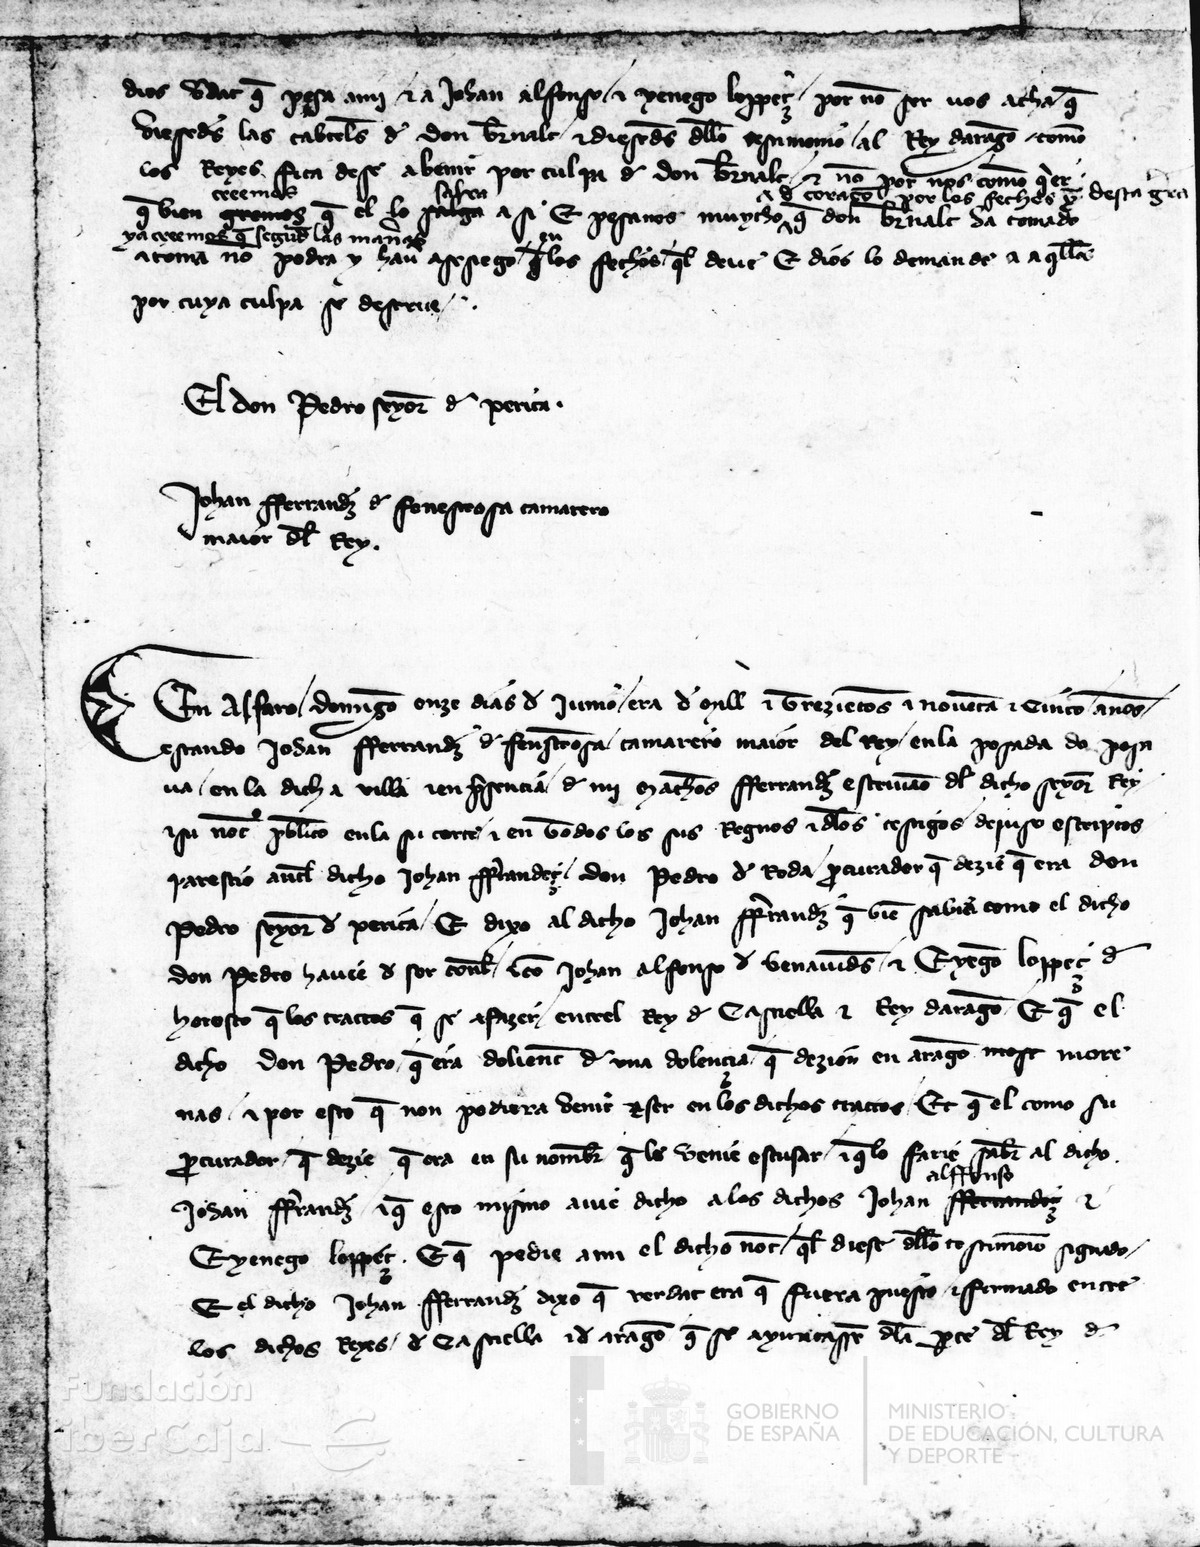 dios vdat q̃ pesa ami / & a Johan alfonso / & yenego loppeç / por nõ ser uos acha q̃
diesedes las cabeles d' don bernalt / & diesedes dello testimonio / al Rey daragõ / como
los Reyes fica dese abenir por culpa d' don bernalt / & nõ por nos como q̃er
creemos salga a d' coraçõ por los fechos p̃ desta gr̃a
q̃ bien q̃ el lo a si E pesanos muycho q̃ don bernalt da tomado
ya creemos q̃ segũd las mañas en
atoma nõ podra y hauer asesiego los fechos q̃l deue E dios lo demande a aq̃lla
por cuya culpa se desterue / .
El don Pedro seyor d' perica .
Johan fferrandz d' fenestrosa camarero
maior dl̃ Rey .
En Alfaro / domĩgo onze dias d' Junio / era d' mill & trezientos & nouẽta & Cinco años /
estando Johan fferrandz d' fenestrosa / camarero maior del Rey / en la posada do posa
ua / en la dicha villa & en p̃sencia d' mi Matheos fferrandz escriuano dl̃ dicho seyor Rey
& su notº publico en la su corte & en todos los sus Regnos & dlos testigos dejuso escriptos
parescio antl̃ dicho Johan ffr̃andez / don Pedro d' Roda / procurador q̃ dezie q̃ era don
Pedro seyor d' perica / E dixo al dicho Johan ffr̃andz q̃ biẽ sabia como el dicho
don Pedro hauie d' ser con / Johan alfonso d' benauids / & Eyenego loppeç d'
horosco q̃ los tractos q̃ se afazer / entrel Rey d' Castiella & Rey daragõ E q̃ el
dicho don Pedro / q̃ era dolient d' una dolencia q̃ dezion en aragõ most more
nas / & por esto q̃ non podiera venir & ser en los dichos tractos / Et q̃ el como su
procurador / q̃ dezie q̃ era en su nombr̃ q̃ le venie escusar / & q̃lo farie saber al dicho
alffonso
Johan ffr̃andz & q̃ esto mismo auie dicho a los dichos Johan fferrandeç &
Eyenego loppeç . E q̃ pedie ami el dicho not / q̃l diese dllo testimonio signado /
E el dicho Johan fferrandz dixo q̃ verdat era q̃ fuera puesto & firmado entre
los dichos Reyes / d' Castiella & d' aragõ q̃ se ayuntassen dla p̃te dl̃ Rey d'
Fundación
iberCaja
GOBIERNO
DE ESPAÑA
MINISTERIO
DE EDUCACIÓN, CULTURA
Y DEPORTE